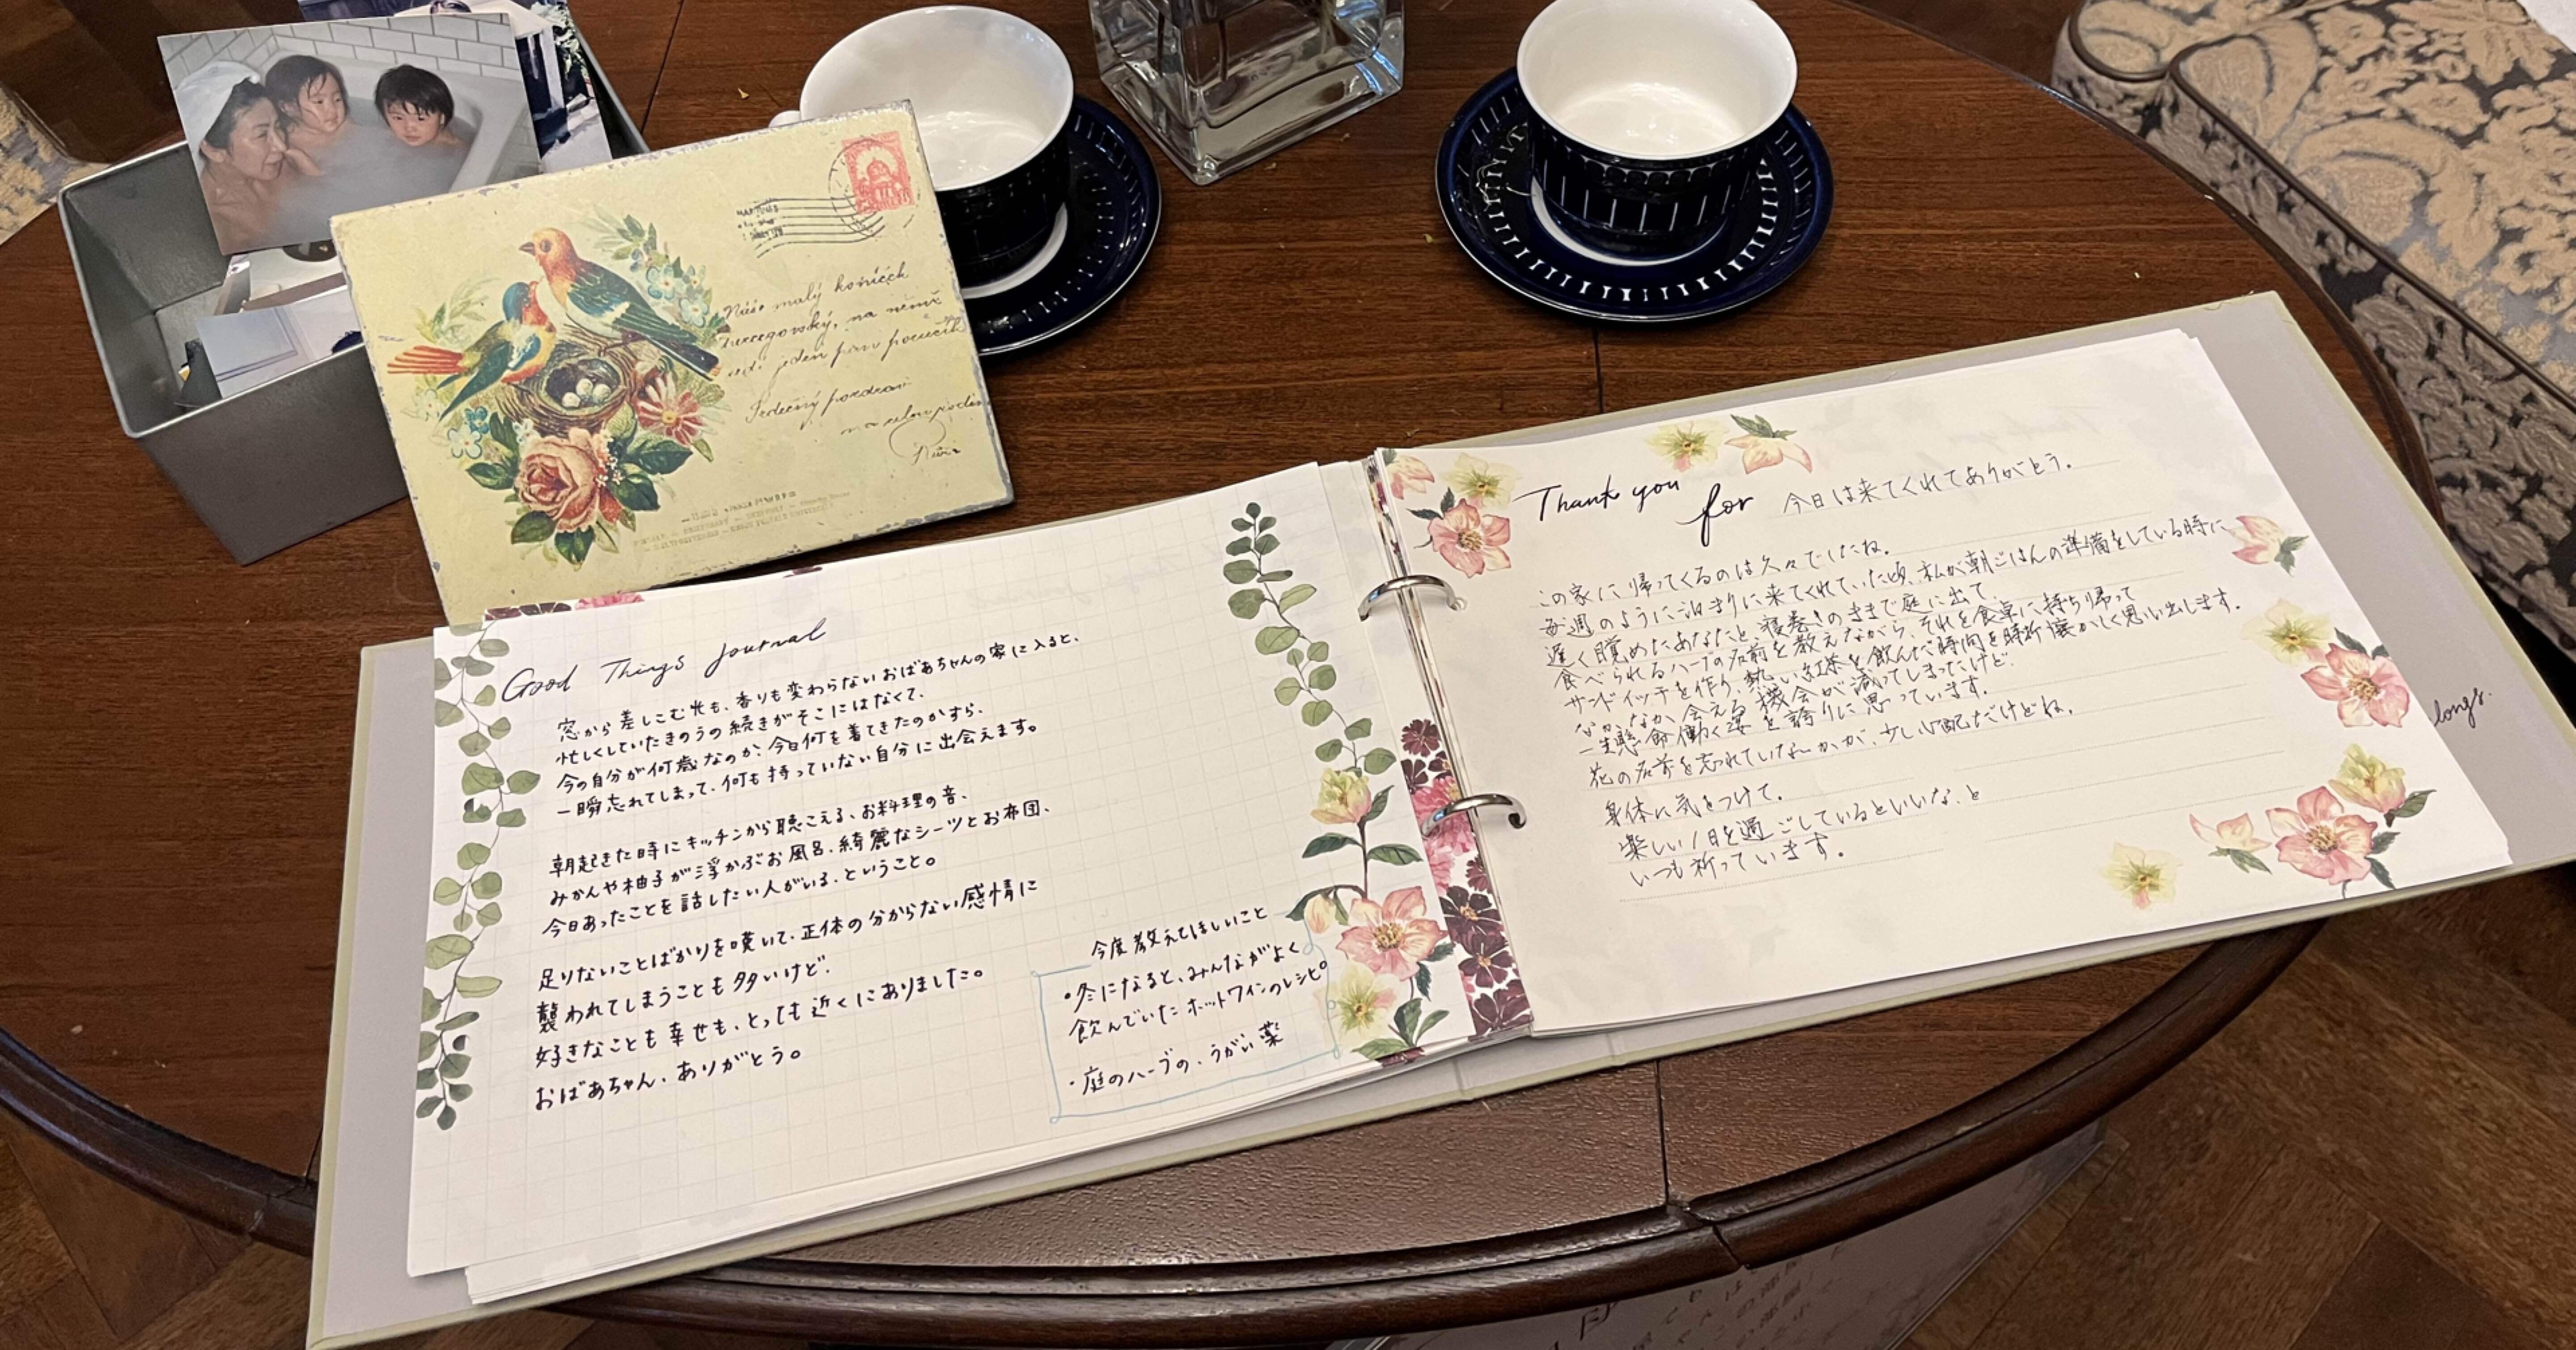 Náše malý koníček
na němž
sedí jeden pan
Srdečný pozdrav
Good Things Journal
窓から差しこむ光も、香りも変わらないおばあちゃんの家に入ると、
忙しくしていたきのうの続きがそこにはなくて、
今の自分が何歳なのか、今日何を着てきたのかすら、
一瞬忘れてしまって、何も持っていない自分に出会えます。
朝起きた時にキッチンから聴こえる、お料理の音、
みかんや柚子が浮かぶお風呂、綺麗なシーツとお布団、
今日あったことを話したい人がいる、ということ。
足りないことばかりを嘆いて、正体の分からない感情に
襲われてしまうことも多いけど、
好きなことも幸せも、とっても近くにありました。
おばあちゃん、ありがとう。
今度教えてほしいこと
・冬になると、みんながよく
飲んでいたホットワインのレシピ
・庭のハーブの、うがい薬
Thank you for 今日は来てくれてありがとう。
この家に帰ってくるのは久々でしたね。
毎週のように泊まりに来てくれていた頃、私が朝ごはんの準備をしている時に
遅く目覚めたあなたと、寝巻きのままで庭に出て、
食べられるハーブの名前を教えながら、それを食卓に持ち帰って
サンドイッチを作り、熱い紅茶を飲んだ時間を時折懐かしく思い出します。
なかなか会える機会が減ってしまったけど、
一生懸命働く姿を誇りに思っています。
花の名前を忘れていないかが、少し心配だけどね。
身体に気をつけて。
楽しい1日を過ごしているといいな、と
いつも祈っています。
longs.